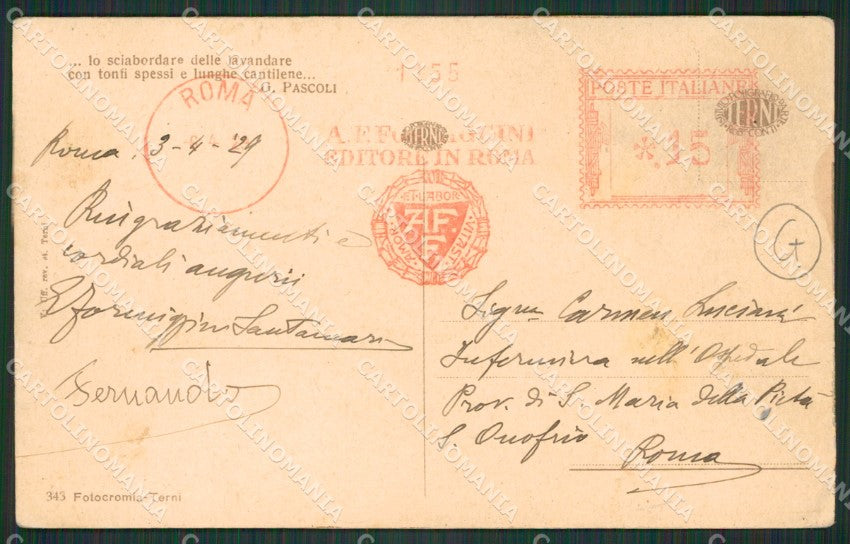 ... lo sciabordare delle lavandare
con tonfi spessi e lunghe cantilene...
G. PASCOLI
ROMA
POSTE ITALIANE
15
EDITORE IN ROMA
A.F.
F
TERNI
TERNI
Roma, 3-4-'29
Ringraziamenti e
cordiali auguri
E Formiggini Santamaria
Bernardo
Sign.na Carmen Luciani
Infermiera nell'Ospedale
Prov. di S. Maria della Pietà
S. Onofrio
Roma
343 Fotocromia-Terni
CARTOLINOMANIA